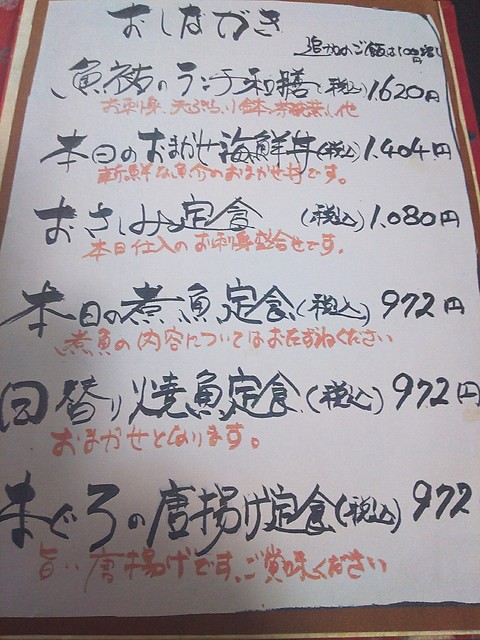 おしながき
追加のご飯は100円
魚祐のランチ和膳(税込)1.620円
お刺身、天ぷら、小鉢、茶碗蒸し、他
本日のおまかせ海鮮丼(税込)1.404円
新鮮な魚介のおまかせ丼です。
おさしみ定食 (税込)1.080円
本日仕入のお刺身盛合せです。
本日の煮魚定食(税込)972円
煮魚の内容についてはおたずねください
日替り焼魚定食(税込)972円
おまかせとなります。
まぐろの唐揚げ定食(税込)972
旨い唐揚げです、ご賞味ください